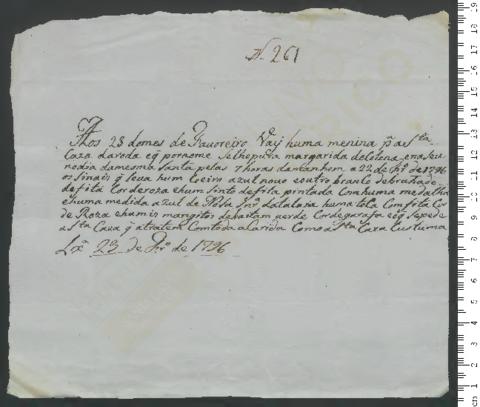 N. 261
Aos 23 do mes de Favoreiro Vay huma menina pª as ta
Caza da roda e q̃ por nome Se lhe puzra margarida de Colona en o seu
no dia da mesma Santa pelas 7 horas da
a 22 de de 1796
os sinais q̃ Leva hum Coeiro azul novo e outro branco debruado de
de fita Cor de roza e hum Sinto de fita pintada Com huma medalha
e huma medida azul de Nosa Snrª huma tola Com fita Cor
de Roza e hum is de baitam verde Cor de garafa e q̃ Se pede
a es ta Caza q̃ a tratem Com toda a Caridade Como Caza Custuma
Lxª 23 de de 1796